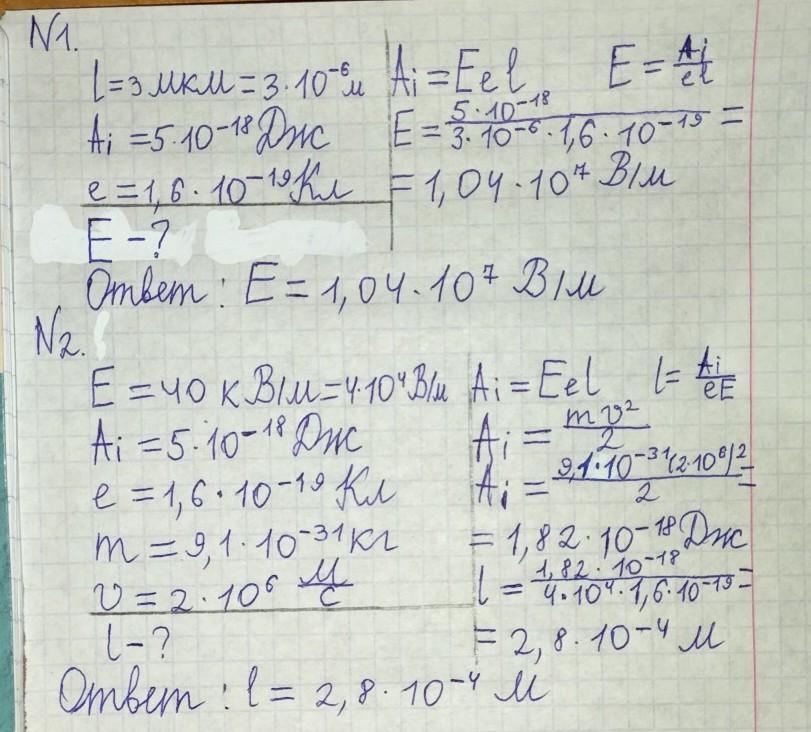 N1.
l=3 мкм=3·10⁻⁶м
Aᵢ=5·10⁻¹⁸Дж
e=1,6·10⁻¹⁹Кл
E-?
Aᵢ=Eel E=Aᵢ/el
E=5·10⁻¹⁸/3·10⁻⁶·1,6·10⁻¹⁹=
=1,04·10⁷ В/м
Ответ: E=1,04·10⁷ В/м
N2.
E=40 кВ/м=4·10⁴В/м
Aᵢ=5·10⁻¹⁸Дж
e=1,6·10⁻¹⁹ Кл
m=9,1·10⁻³¹кг
υ=2·10⁶ м/с
l-?
Aᵢ=Eel l=Aᵢ/eE
Aᵢ=mυ²/2
Aᵢ=9,1·10⁻³¹(2·10⁶)²/2=
=1,82·10⁻¹⁸Дж
l=1,82·10⁻¹⁸/4·10⁴·1,6·10⁻¹⁹=
=2,8·10⁻⁴ м
Ответ: l=2,8·10⁻⁴ м